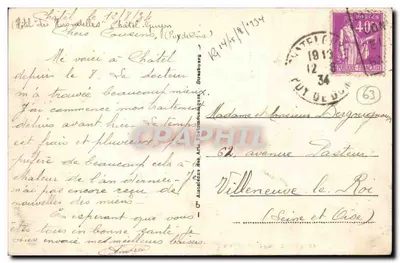 Châtel le 12/8/34
Hôtel des Hirondelles Châtel-Guyon
Chers Cousins, (Puy de Dôme)
Me voici à Châtel
depuis le 8. Le docteur
m'a trouvée beaucoup mieux.
J'ai commencé mon traitement
depuis avant hier. Le temps
est frais et pluvieux. Je
préfère de beaucoup cela à la
chaleur de l'an dernier. Je
n'ai pas encore reçu de
nouvelles des miens.
En espérant que vous
êtes tous en bonne santé je
vous envoie mes meilleurs baisers.
R 14/8/1934
CHATEL
1913
12
34
PUY DE DOME
40
63
Madame et Monsieur
62, avenue Pasteur
Villeneuve le Roi
(Seine et Oise)
CPArama.com